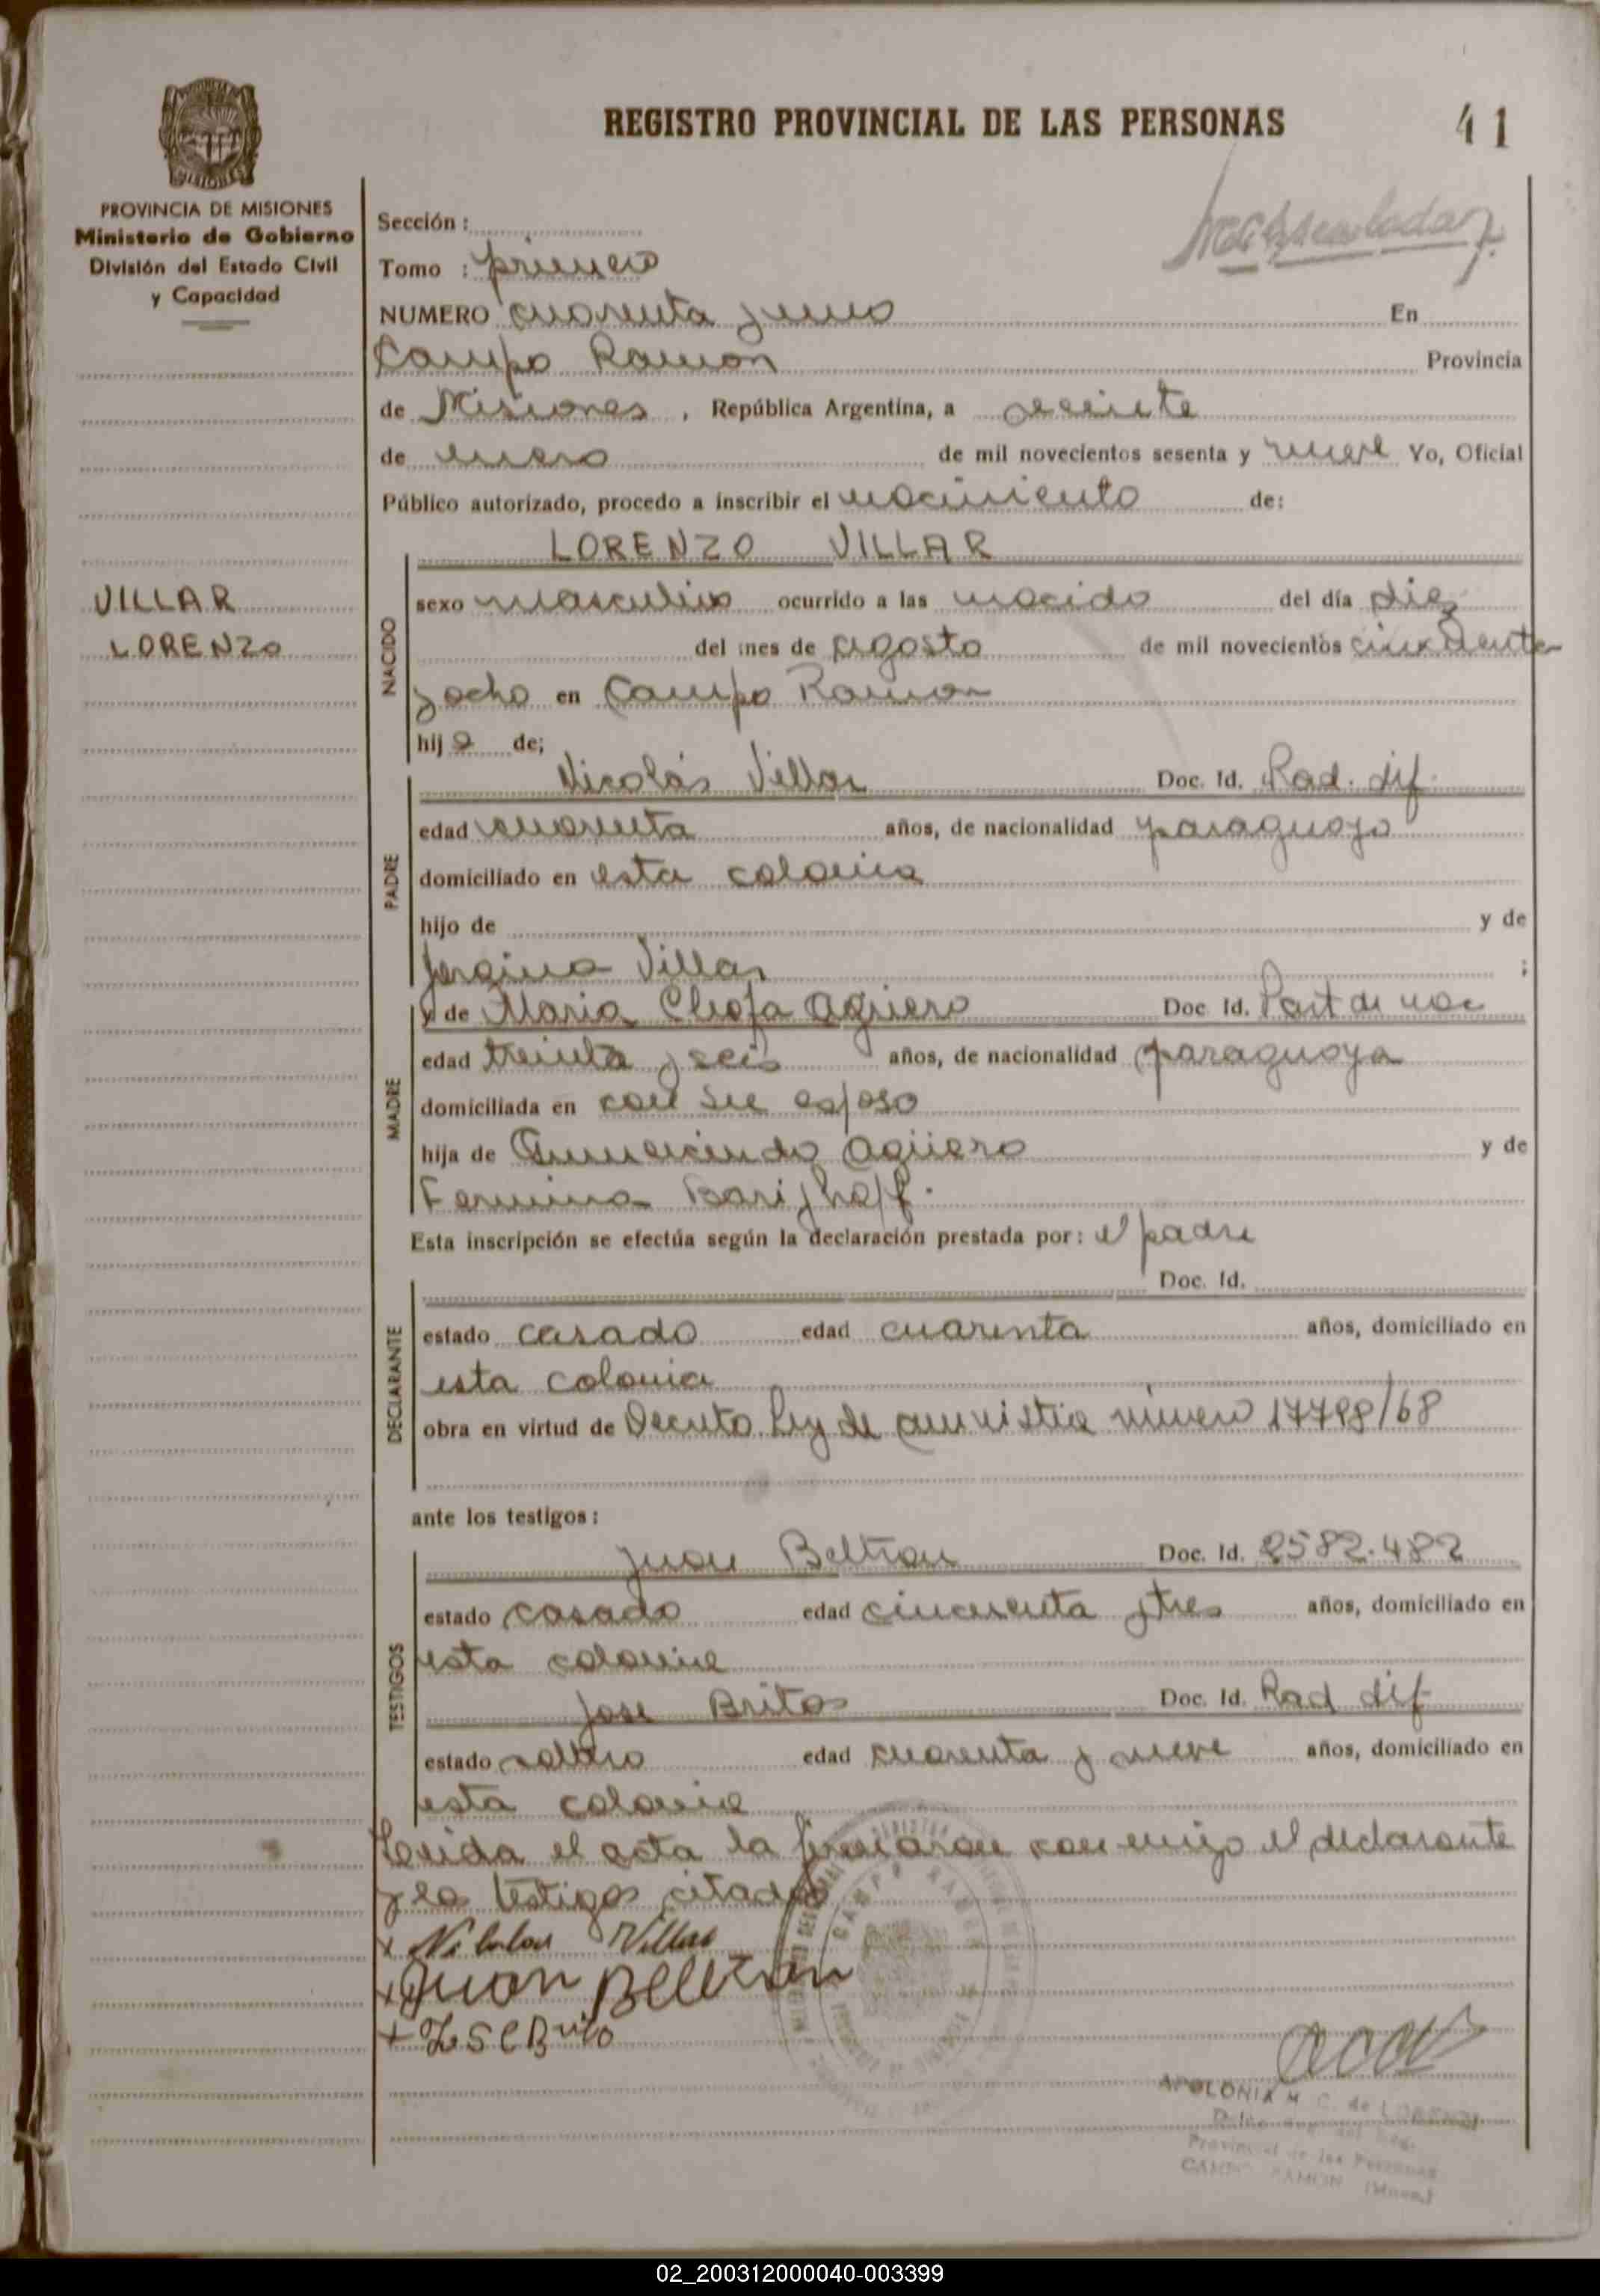 REGISTRO PROVINCIAL DE LAS PERSONAS
41
MISIONES
PROVINCIA DE MISIONES
Ministerio de Gobierno
División del Estado Civil
y Capacidad
VILLAR
LORENZO
Sección :
Tomo : primero
NUMERO cuarenta y uno En
Campo Ramon Provincia
de Misiones, República Argentina, a veinte
de enero de mil novecientos sesenta y nueve Yo, Oficial
Público autorizado, procedo a inscribir el nacimiento de:
NACIDO
LORENZO VILLAR
sexo masculino ocurrido a las nacido del día diez
del mes de agosto de mil novecientos cincuenta
y ocho en Campo Ramon
hijo de;
PADRE
Nicolás Villar Doc. Id. Rad. dif.
edad cuarenta años, de nacionalidad paraguayo
domiciliado en esta colonia
hijo de y de
Villar ;
MADRE
y de Maria Cleofa Agüero Doc Id. Part de nac
edad treinta y seis años, de nacionalidad paraguaya
domiciliada en con su esposo
hija de Gumercindo Agüero y de
Fermina
Esta inscripción se efectúa según la declaración prestada por: el padre
Doc. Id.
DECLARANTE
estado casado edad cuarenta años, domiciliado en
esta colonia
obra en virtud de Decreto Ley de amnistia número 17798/68
ante los testigos:
TESTIGOS
Juan Beltran Doc. Id. 2582.482
estado casado edad cincuenta y tres años, domiciliado en
esta colonia
Jose Britos Doc. Id. Rad dif
estado soltero edad cuarenta y nueve años, domiciliado en
esta colonia
Leida el acta la firmaron conmigo el declarante
y los testigos citados
x Villar
x Juan Beltran
+ Brito
CAMPO RAMON
APOLONIA M. C. de
Provincial de las Personas
CAMPO RAMON (Mnes.)
02_200312000040-003399